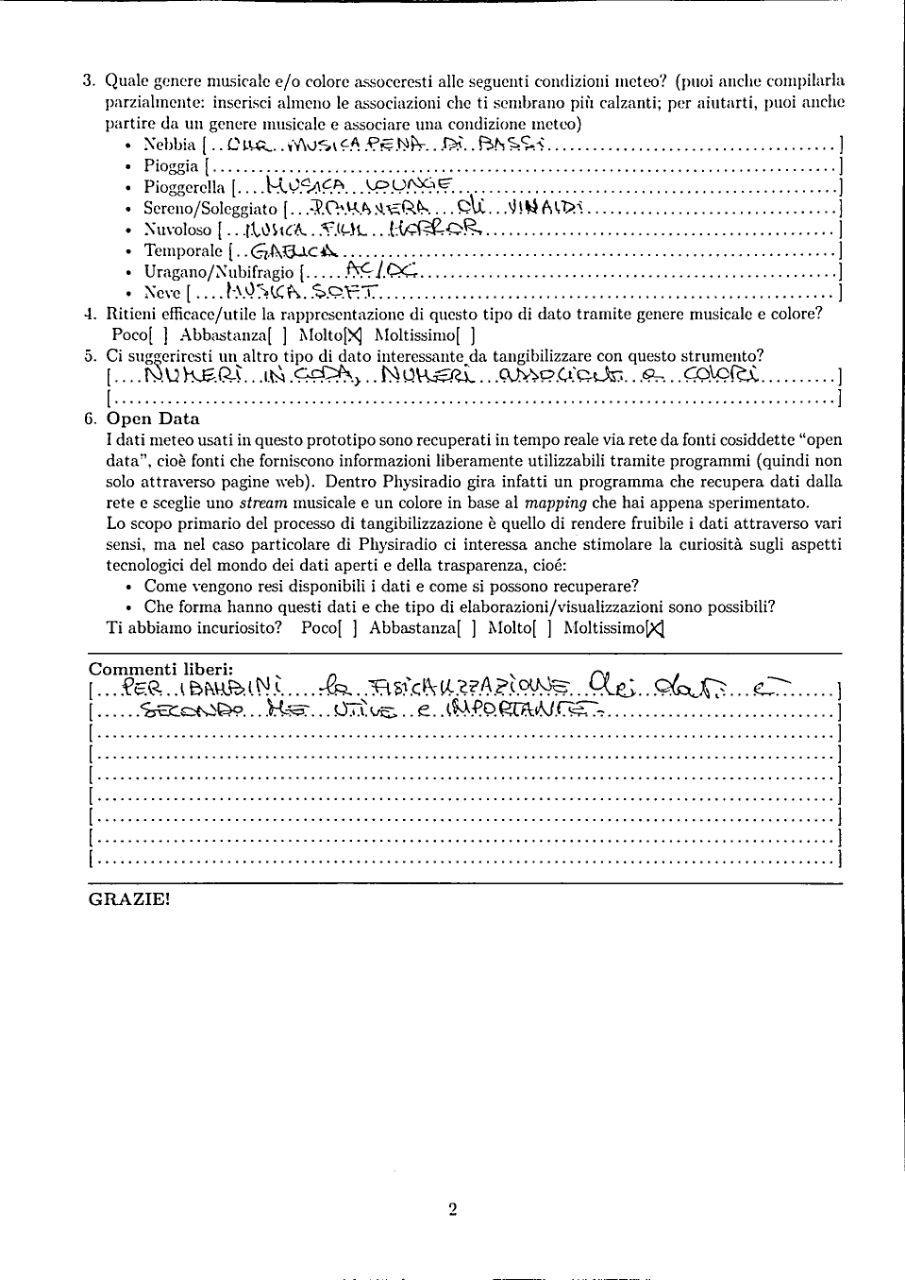 3. Quale genere musicale e/o colore assoceresti alle seguenti condizioni meteo? (puoi anche compilarla
parzialmente: inserisci almeno le associazioni che ti sembrano più calzanti; per aiutarti, puoi anche
partire da un genere musicale e associare una condizione meteo)
• Nebbia [ MUSICA PENA Di BASSi ]
• Pioggia [ ]
• Pioggerella [ MUSICA LOUNGE ]
• Sereno/Soleggiato [ PRIMAVERA di VIVALDi ]
• Nuvoloso [ MUSICA FILM HORROR ]
• Temporale [ GAELICA ]
• Uragano/Nubifragio [ AC/DC ]
• Neve [ MUSICA SOFT ]
4. Ritieni efficace/utile la rappresentazione di questo tipo di dato tramite genere musicale e colore?
Poco[ ] Abbastanza[ ] Molto[X] Moltissimo[ ]
5. Ci suggeriresti un altro tipo di dato interessante da tangibilizzare con questo strumento?
[ NUMERi IN CODA, NUMERi associati a COLORi ]
[ ]
6. Open Data
I dati meteo usati in questo prototipo sono recuperati in tempo reale via rete da fonti cosiddette “open
data”, cioè fonti che forniscono informazioni liberamente utilizzabili tramite programmi (quindi non
solo attraverso pagine web). Dentro Physiradio gira infatti un programma che recupera dati dalla
rete e sceglie uno stream musicale e un colore in base al mapping che hai appena sperimentato.
Lo scopo primario del processo di tangibilizzazione è quello di rendere fruibile i dati attraverso vari
sensi, ma nel caso particolare di Physiradio ci interessa anche stimolare la curiosità sugli aspetti
tecnologici del mondo dei dati aperti e della trasparenza, cioé:
• Come vengono resi disponibili i dati e come si possono recuperare?
• Che forma hanno questi dati e che tipo di elaborazioni/visualizzazioni sono possibili?
Ti abbiamo incuriosito? Poco[ ] Abbastanza[ ] Molto[ ] Moltissimo[X]
Commenti liberi:
[ PER I BAMBINi la FISICALIZZAZiONE dei dati è ]
[ SECONDO ME UTILE e IMPORTANTE. ]
[ ]
[ ]
[ ]
[ ]
[ ]
[ ]
[ ]
GRAZIE!
2